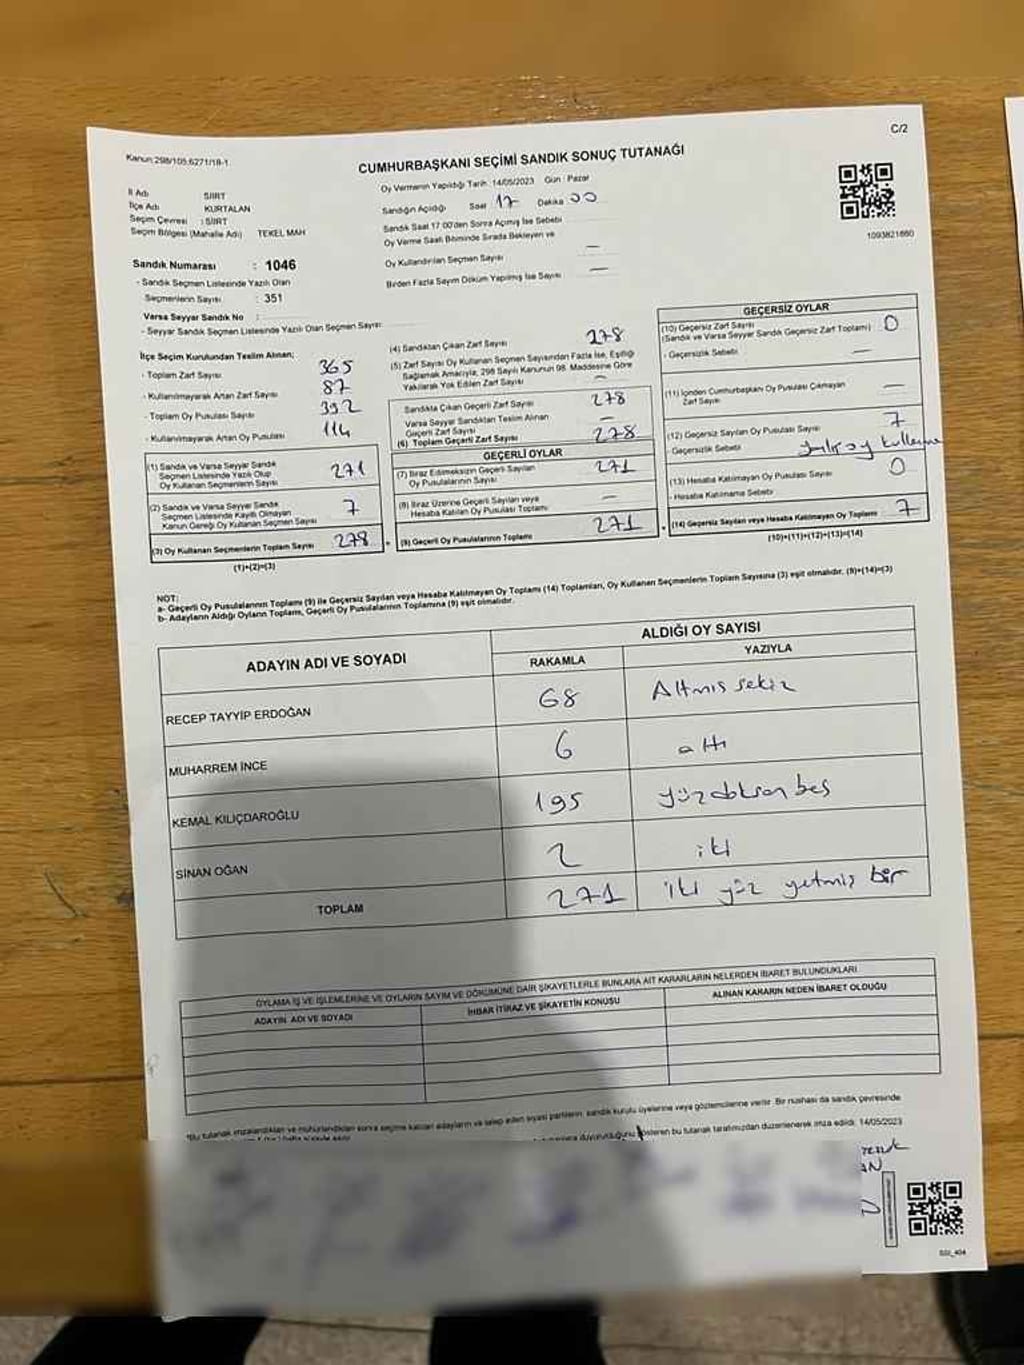 C/2
Kanun:298/105;6271/18-1
CUMHURBAŞKANI SEÇİMİ SANDIK SONUÇ TUTANAĞI
İl Adı SİİRT
İlçe Adı KURTALAN
Seçim Çevresi : SİİRT
Seçim Bölgesi (Mahalle Adı) TEKEL MAH
Sandık Numarası : 1046
- Sandık Seçmen Listesinde Yazılı Olan
Seçmenlerin Sayısı : 351
Varsa Seyyar Sandık No :
- Seyyar Sandık Seçmen Listesinde Yazılı Olan Seçmen Sayısı
Oy Vermenin Yapıldığı Tarih : 14/05/2023 Gün : Pazar
Sandığın Açıldığı Saat 17 Dakika 00
Sandık Saat 17:00'den Sonra Açılmış İse Sebebi
Oy Verme Saati Bitiminde Sırada Bekleyen ve
Oy Kullandırılan Seçmen Sayısı —
Birden Fazla Sayım Döküm Yapılmış İse Sayısı —
1093821660
İlçe Seçim Kurulundan Teslim Alınan;
- Toplam Zarf Sayısı 365
- Kullanılmayarak Artan Zarf Sayısı 87
- Toplam Oy Pusulası Sayısı 392
- Kullanılmayarak Artan Oy Pusulası 114
(1) Sandık ve Varsa Seyyar Sandık
Seçmen Listesinde Yazılı Olup
Oy Kullanan Seçmenlerin Sayısı 271
(2) Sandık ve Varsa Seyyar Sandık
Seçmen Listesinde Kayıtlı Olmayan
Kanun Gereği Oy Kullanan Seçmen Sayısı 7
(3) Oy Kullanan Seçmenlerin Toplam Sayısı 278
(1)+(2)=(3)
(4) Sandıktan Çıkan Zarf Sayısı 278
(5) Zarf Sayısı Oy Kullanan Seçmen Sayısından Fazla İse, Eşitliği
Sağlamak Amacıyla, 298 Sayılı Kanunun 98. Maddesine Göre
Yakılarak Yok Edilen Zarf Sayısı —
Sandıkta Çıkan Geçerli Zarf Sayısı 278
Varsa Seyyar Sandıktan Teslim Alınan
Geçerli Zarf Sayısı —
(6) Toplam Geçerli Zarf Sayısı 278
GEÇERLİ OYLAR
(7) İtiraz Edilmeksizin Geçerli Sayılan
Oy Pusulalarının Sayısı 271
(8) İtiraz Üzerine Geçerli Sayılan veya
Hesaba Katılan Oy Pusulası Toplamı —
(9) Geçerli Oy Pusulalarının Toplamı 271
GEÇERSİZ OYLAR
(10) Geçersiz Zarf Sayısı 0
(Sandık ve Varsa Seyyar Sandık Geçersiz Zarf Toplamı)
- Geçersizlik Sebebi —
(11) İçinden Cumhurbaşkanı Oy Pusulası Çıkmayan
Zarf Sayısı —
(12) Geçersiz Sayılan Oy Pusulası Sayısı 7
- Geçersizlik Sebebi oy
(13) Hesaba Katılmayan Oy Pusulası Sayısı 0
- Hesaba Katılmama Sebebi
(14) Geçersiz Sayılan veya Hesaba Katılmayan Oy Toplamı 7
(10)+(11)+(12)+(13)=(14)
NOT:
a- Geçerli Oy Pusulalarının Toplamı (9) ile Geçersiz Sayılan veya Hesaba Katılmayan Oy Toplamı (14) Toplamları, Oy Kullanan Seçmenlerin Toplam Sayısına (3) eşit olmalıdır. (9)+(14)=(3)
b- Adayların Aldığı Oyların Toplamı, Geçerli Oy Pusulalarının Toplamına (9) eşit olmalıdır.
ADAYIN ADI VE SOYADI ALDIĞI OY SAYISI
RAKAMLA YAZIYLA
RECEP TAYYİP ERDOĞAN 68 Altmış sekiz
MUHARREM İNCE 6 altı
KEMAL KILIÇDAROĞLU 195 yüzdoksan beş
SİNAN OĞAN 2 iki
TOPLAM 271 iki yüz yetmiş bir
OYLAMA İŞ VE İŞLEMLERİNE VE OYLARIN SAYIM VE DÖKÜMÜNE DAİR ŞİKAYETLERLE BUNLARA AİT KARARLARIN NELERDEN İBARET BULUNDUKLARI
ADAYIN ADI VE SOYADI İHBAR İTİRAZ VE ŞİKAYETİN KONUSU ALINAN KARARIN NEDEN İBARET OLDUĞU
*Bu tutanak imzalandıktan ve mühürlendikten sonra seçime katılan adayların ve talep eden siyasi partilerin, sandık kurulu üyelerine veya gözlemcilerine verilir. Bir nüshası da sandık çevresinde
duyurulduğunu gösteren bu tutanak tarafımızdan düzenlenerek imza edildi. 14/05/2023